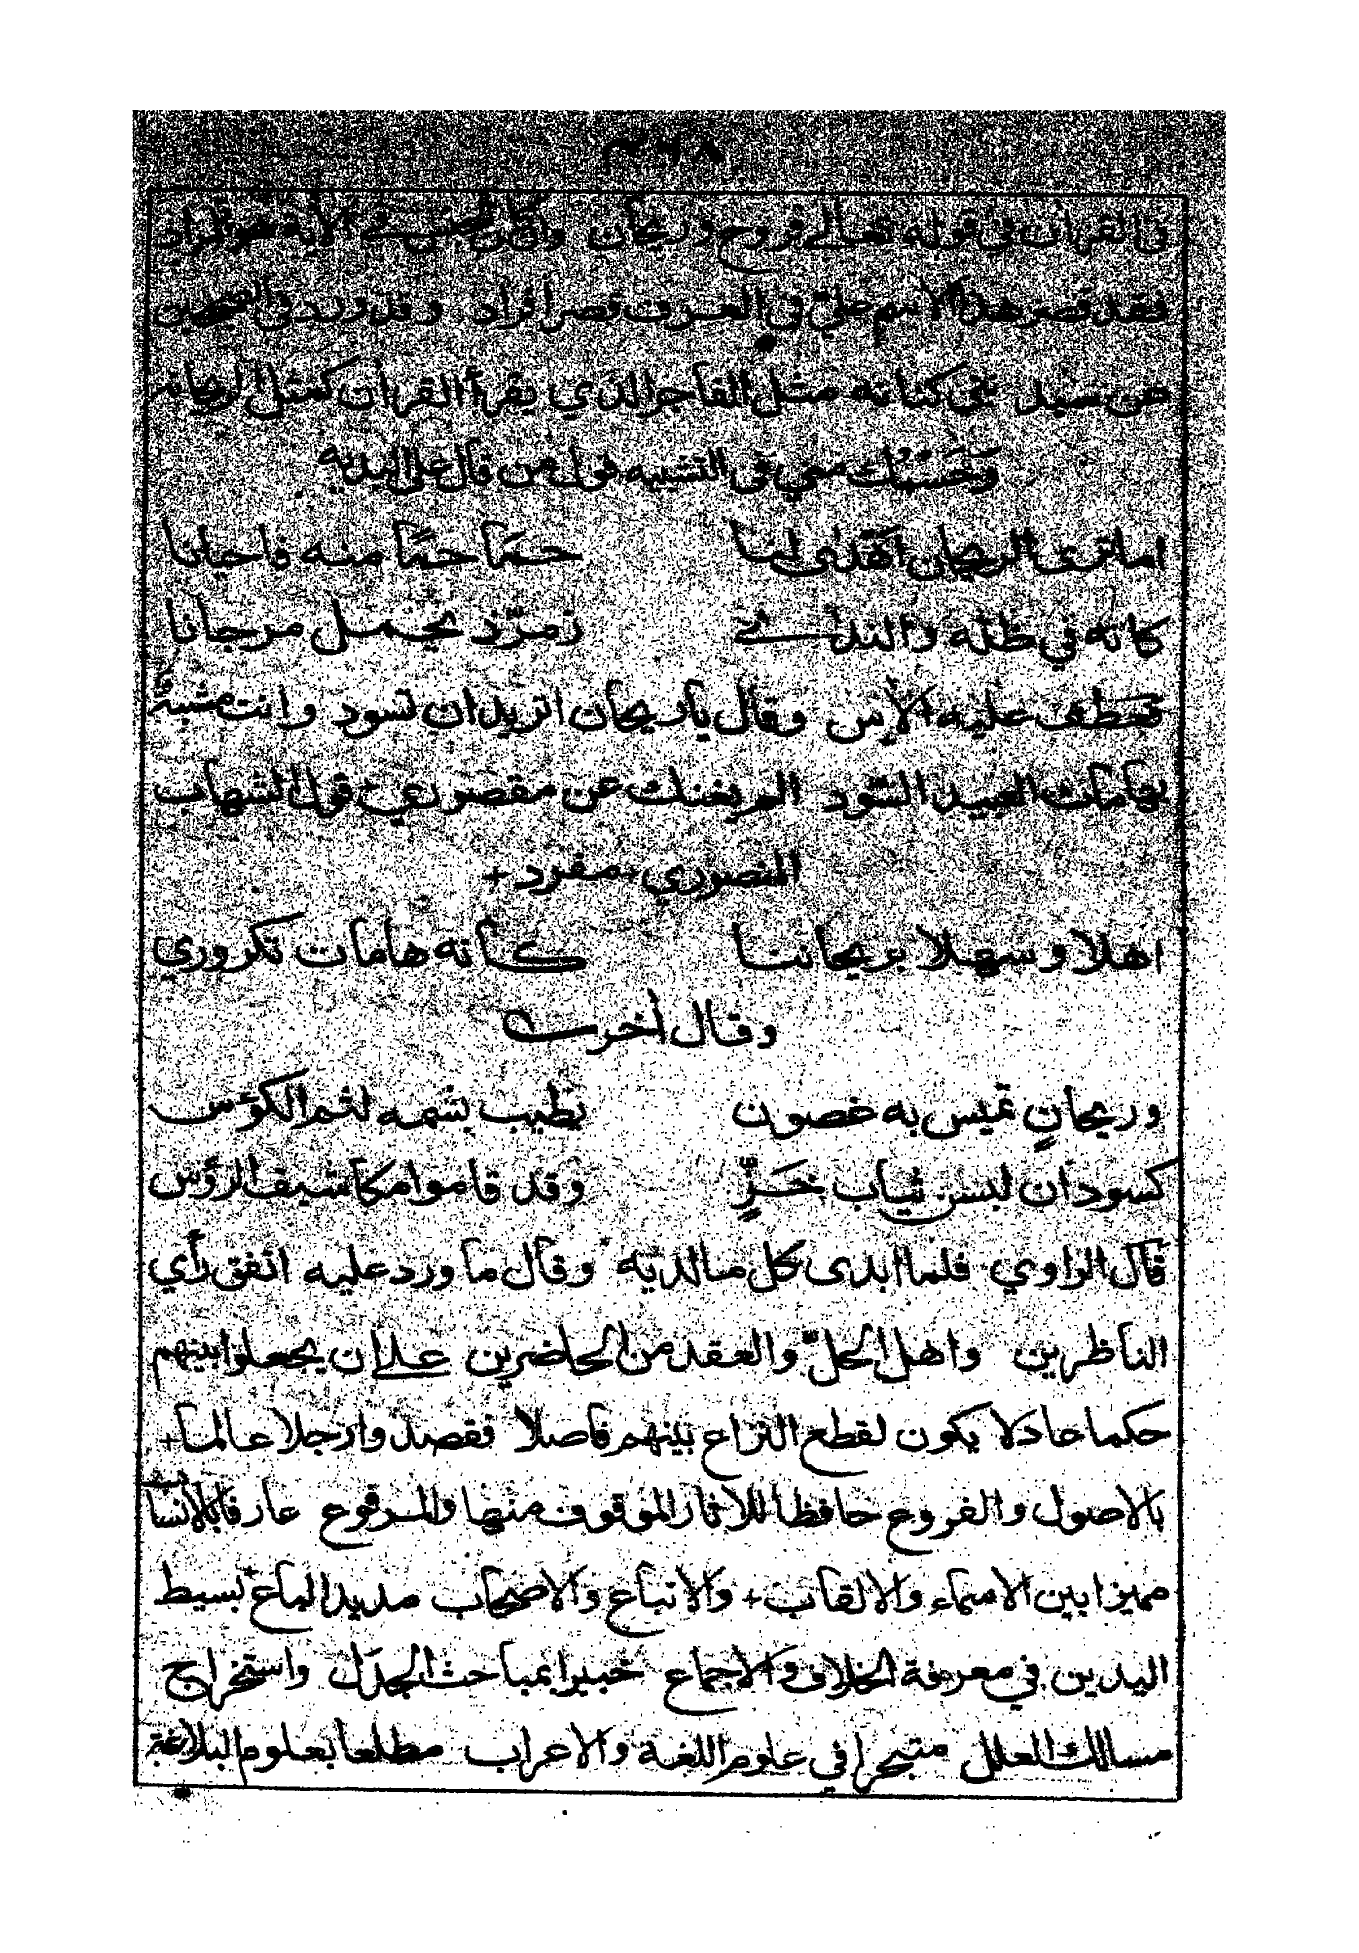 ٣٦٨
في القرآن في قوله تعالى فروح وريحان وان كان المعنى في الآية هو المراد
فقد قصر هذا الاسم علي في العرف قصر افراد وقد ورد في الصحيحين
عن سيد بني كنانه مثل الفاجر الذي يقرأ القرأن كمثل الريحانه
وحسبك مني في التشبيه قول من قال على البديه
اما ترى الريحان اهدى لنا حمَاحمًا منه فاحيانا
كانه في ظله والندى زمرّد يحمل مرجانا
فعطف عليه الآس وقال ياريحان اتريد ان تسود وانت مشبّه
بهامات العبيد السّود الم يغنك عن مقصر زعي قول الشهاب
المنصوري مفرد +
اهلا وسهلا بريحاننا كأنه هامات تكروري
وقال أخر
وريحانٍ تميس به غصون يطيب بشمه لثم الكؤس
كسودان لبسن ثياب خَزٍّ وقد قاموا مكاشيف الرؤس
قال الراوي فلما ابدى كل ما لديه وقال ما ورد عليه اتفق رأي
الناظرين واهل الحلّ والعقد من الحاضرين علے ان يجعلوا بينهم
حكما عادلا يكون لقطع النزاع بينهم فاصلا فقصدوا رجلا عالما +
بالاصول والفروع حافظا للاثار الموقوف منها والمرفوع عارفا بالانساب
مميزا بين الاسماء والالقاب + والاتباع والاصحاب مديد الباع بسيط
اليدين في معرفة الخلاف والاجماع خبيرا بمباحث الجدَل واستخراج
مسالك العلل متبحرا في علوم اللغة والاعراب مطلعا بعلوم البلاغة